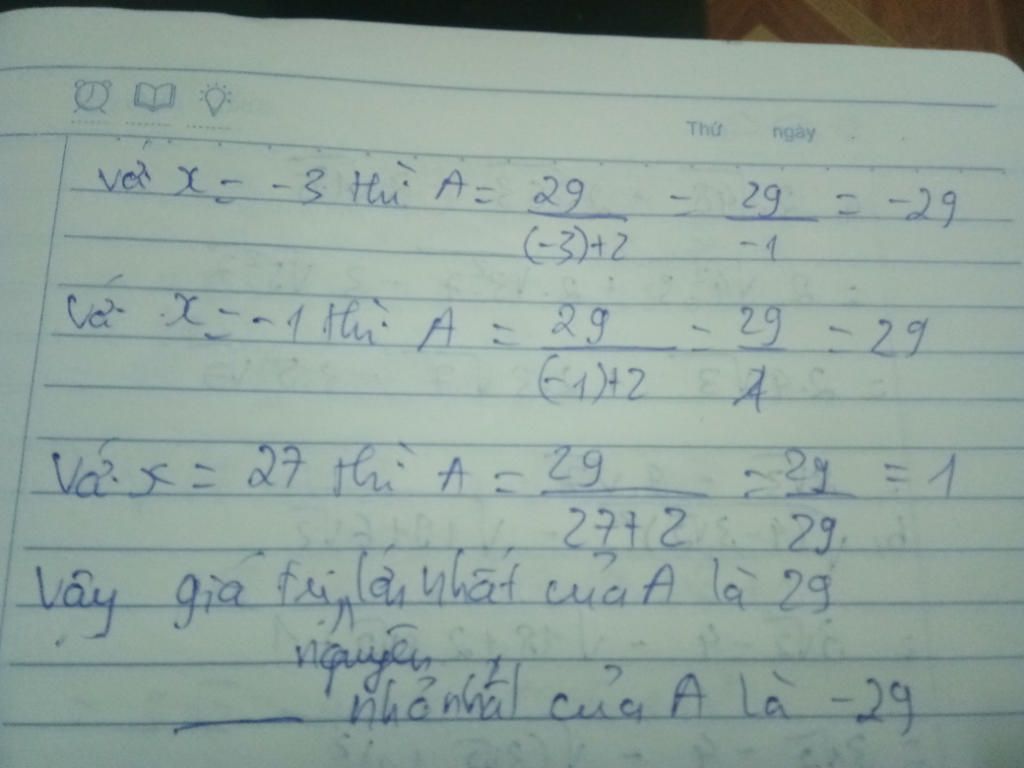 Thứ ngày
Với x = -3 thì A = 29/((-3)+2) = 29/-1 = -29
Với x = -1 thì A = 29/((-1)+2) = 29/1 = 29
Với x = 27 thì A = 29/(27+2) = 29/29 = 1
Vậy giá trị nguyên lớn nhất của A là 29
nhỏ nhất của A là -29